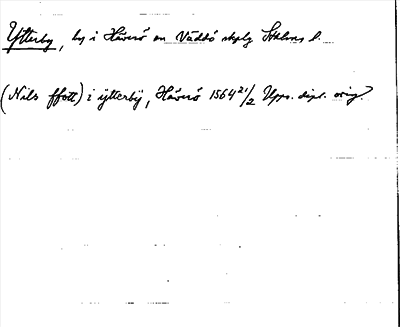 Ytterby, by i Häverö sn Väddö skplg Sthlms l.
(Nils ffott) i ytterbÿ, Häverö 1564 21/2 Upps. dipl. orig.